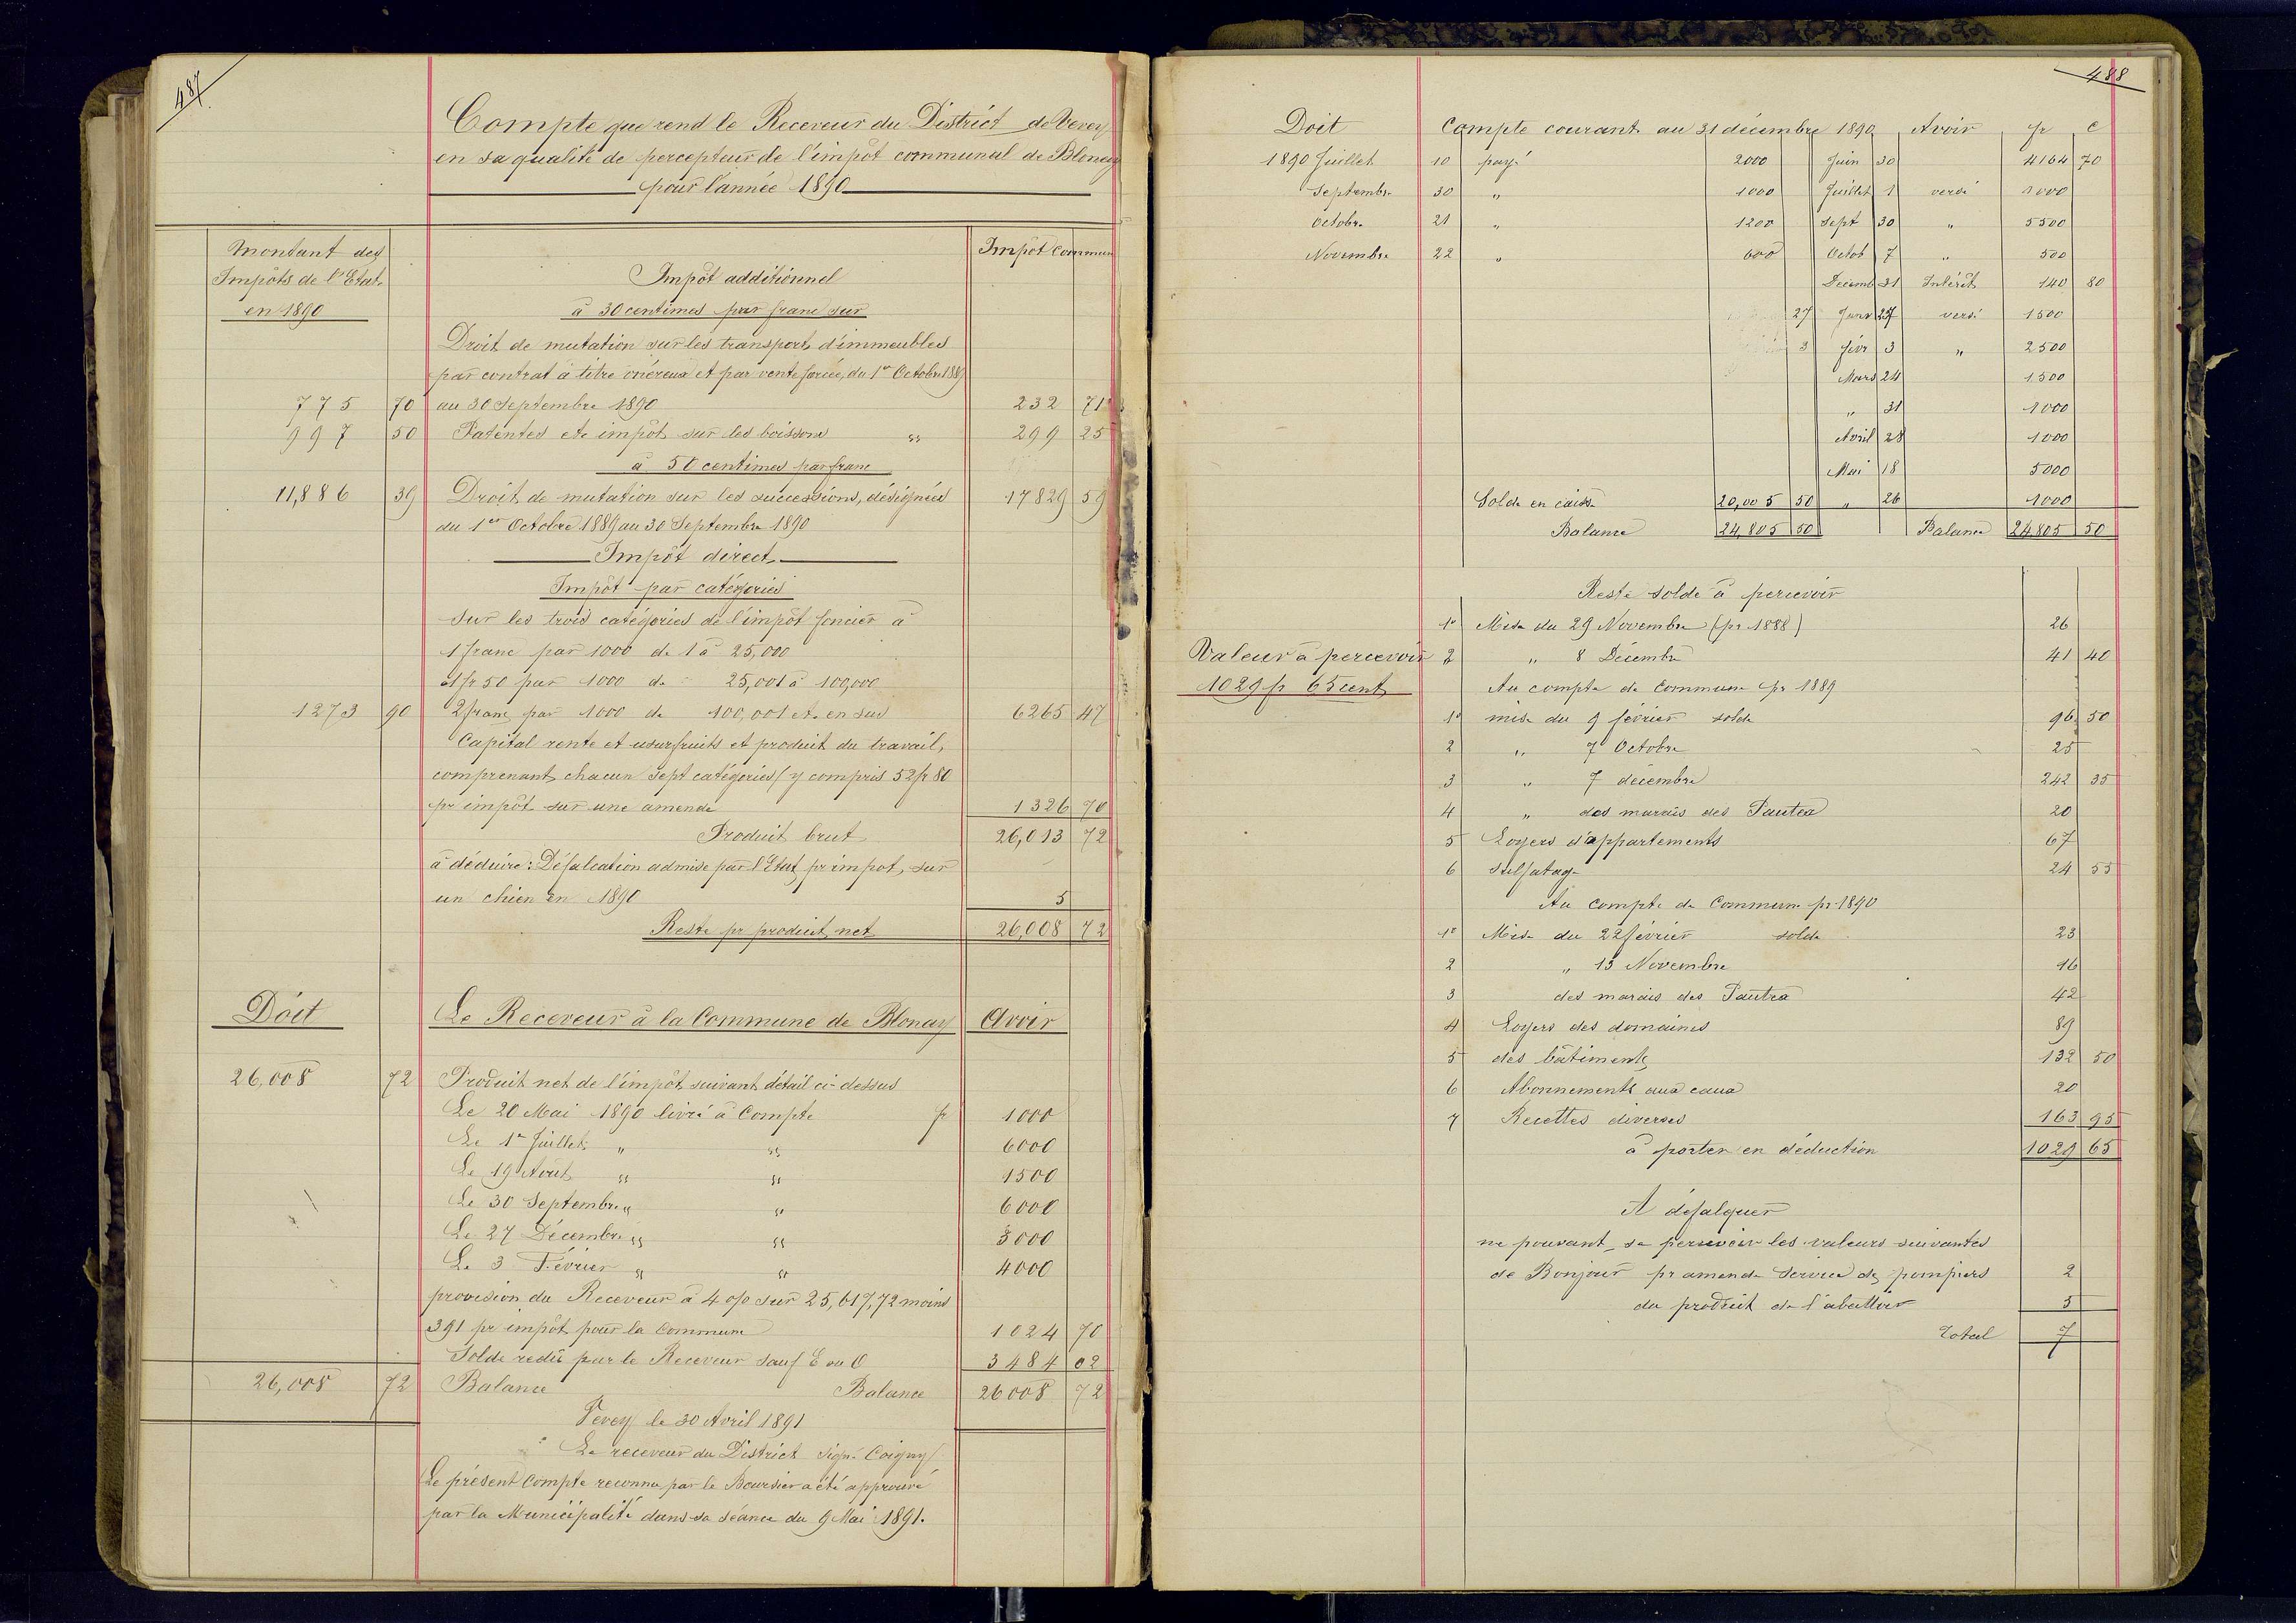 487
Compte que rend le Receveur du District de Vevey
en sa qualité de percepteur de l'impôt communal de Blonay
pour l'année 1890
Montant des
Impôts de l'Etat
en 1890
Impôt Commun
Impôt additionnel
à 30 centimes par franc sur
Droit de mutation sur les transports d'immeubles
par contrat à titre onéreux et par vente forcée, du 1er Octobre 1889
775 70 au 30 Septembre 1890 232 71
997 50 Patentes et impôt sur les boissons " 299 25
à 50 centimes par franc
11,886 39 Droit de mutation sur les successions, désignées 17829 59
du 1er Octobre 1889 au 30 Septembre 1890
Impôt direct
Impôt par catégories
sur les trois catégories de l'impôt foncier à
1 franc par 1000 de 1 à 25,000
1 fr 50 par 1000 de 25,001 à 100,000
1273 90 2 franc par 1000 de 100,001 et en sus 6265 47
Capital rente et usurfruits et produit du travail,
comprenant chacun sept catégories (y compris 52 fr 80
pr impôt sur une amende 1326 70
Produit brut 26,013 72
à déduire: Défalcation admise par l'Etat pr impot, sur
un chien en 1890 5
Reste pr produit net 26,008 72
Doit Le Receveur à la Commune de Blonay Avoir
26,008 72 Produit net de l'impôt suivant détail ci-dessus
Le 20 Mai 1890 livré à Compte fr 1000
Le 1er Juillet " " 6000
Le 19 Août " " 1500
Le 30 Septembre " " 6000
Le 27 Décembre " " 3000
Le 3 Février " " 4000
provision du Receveur à 4 o/o sur 25,617,72 moins
391 pr impôt pour la Commune 1024 70
Solde redû par le Receveur sauf E ou O 3484 02
26,008 72 Balance Balance 26008 72
Vevey le 30 Avril 1891
Le receveur du District signé Coigny
Le présent Compte reconnu par le Boursier a été approuvé
par la Municipalité dans sa séance du 9 Mai 1891.
488
Doit Compte courant au 31 décembre 1890 Avoir fr c
1890 Juillet 10 payé 2000 Juin 30 4164 70
Septembre 30 " 1000 Juillet 1 versé 1000
Octobre 21 " 1200 Sept 30 " 5500
Novembre 22 " 600 Octob 7 " 500
Décemb 31 Intérêt 140 80
27 Janv 27 versé 1500
3 févr 3 " 2500
Mars 24 1500
" 31 1000
Avril 28 1000
Mai 18 5000
Solde en caisse 20,005 50 " 26 1000
Balance 24,805 50 Balance 24,805 50
Reste solde à percevoir
1° Mise du 29 Novembre (pr 1888) 26
Valeur à percevoir 2 " 8 Décembre 41 40
1029 fr 65 cent Au compte de Commune pr 1889
1° mise du 9 février solde 96 50
2 " 7 Octobre 25
3 " 7 décembre 242 35
4 " des marais des Tautex 20
5 Loyers d'appartements 67
6 Sulfatage 24 55
Au compte de Commune pr 1890
1° Mise du 22 février solde 23
2 " 15 Novembre 16
3 des marais des Tautex 42
4 Loyers des domaines 89
5 des bâtiments 132 50
6 Abonnements aux eaux 20
7 Recettes diverses 163 95
à porter en déduction 1029 65
A défalquer
ne pouvant se percevoir les valeurs suivantes
de Bonjour pr amende Service des pompiers 2
du produit de l'abattoir 5
Total 7